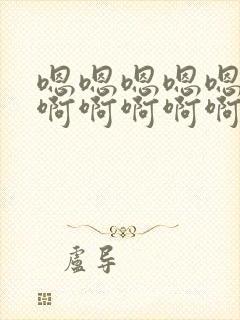 嗯嗯嗯嗯嗯
啊啊啊啊啊
虚导